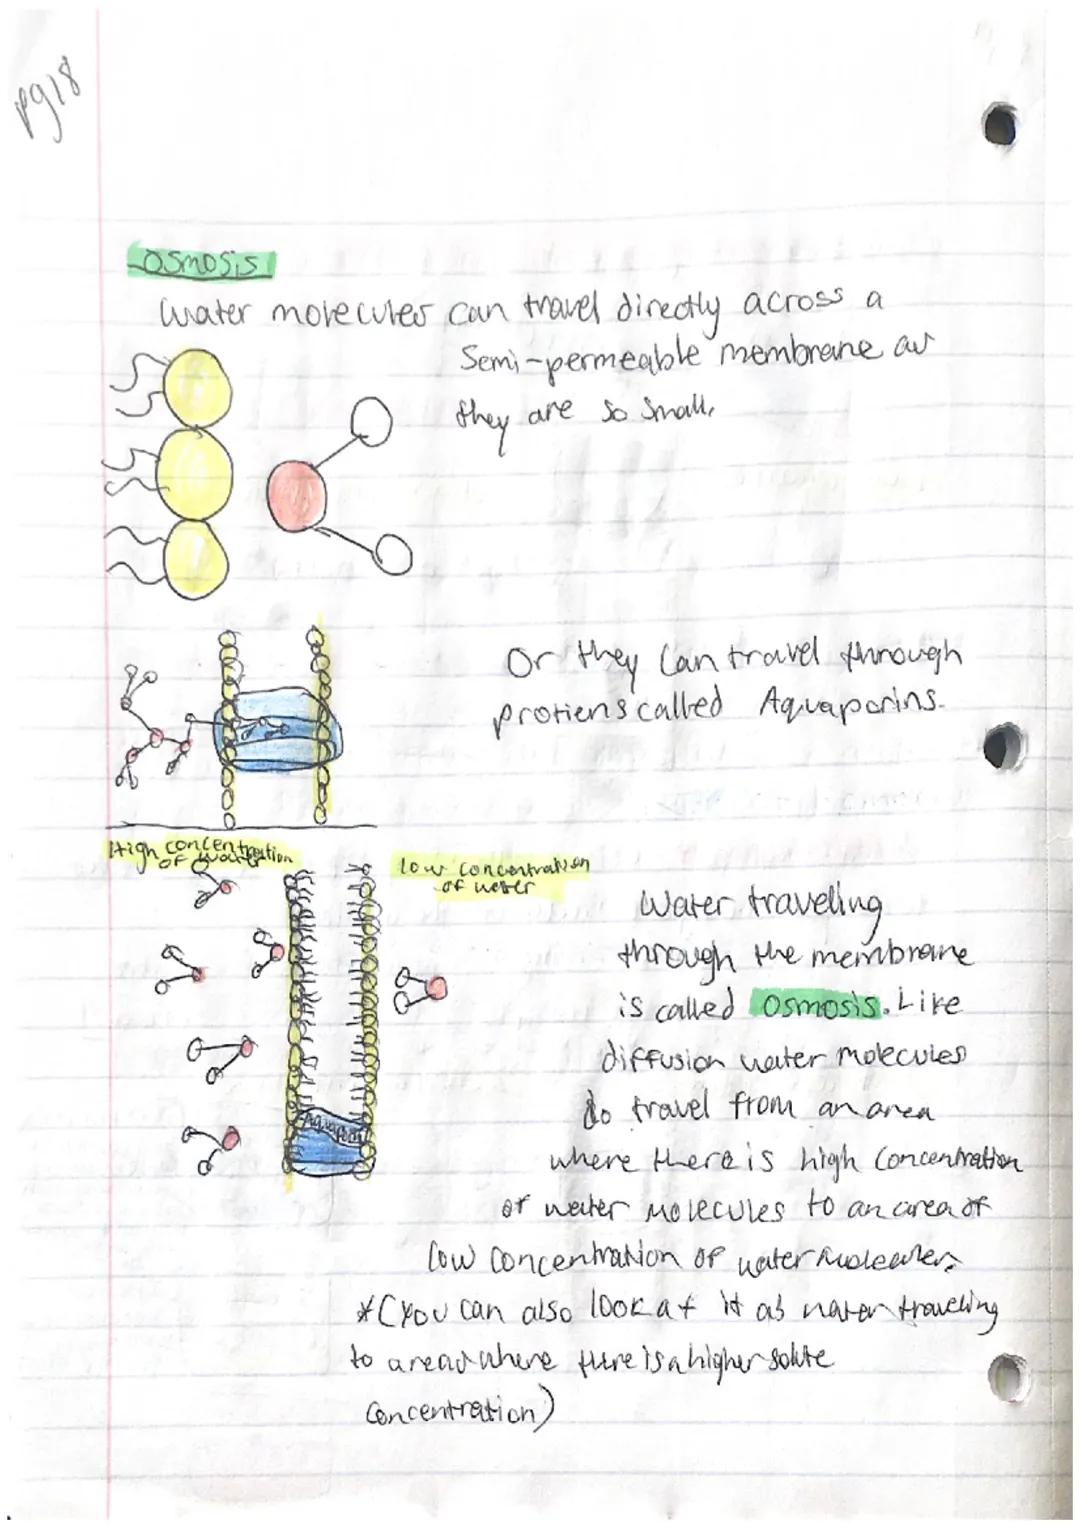 pg18
Osmosis
Water molecules can travel directly across a
Semi-permeable membrane as
they are so small.
Or they can travel through
protiens called Aquaporins.
High concentration
of water
low concentration
of water
Water traveling
through the membrane
is called osmosis. Like
diffusion water molecules
do travel from an area
where there is high concentration
of water molecules to an area of
low concentration of water molecules.
*(You can also look at it as water traveling
to areas where there is a higher solute
concentration)
Aquaporin